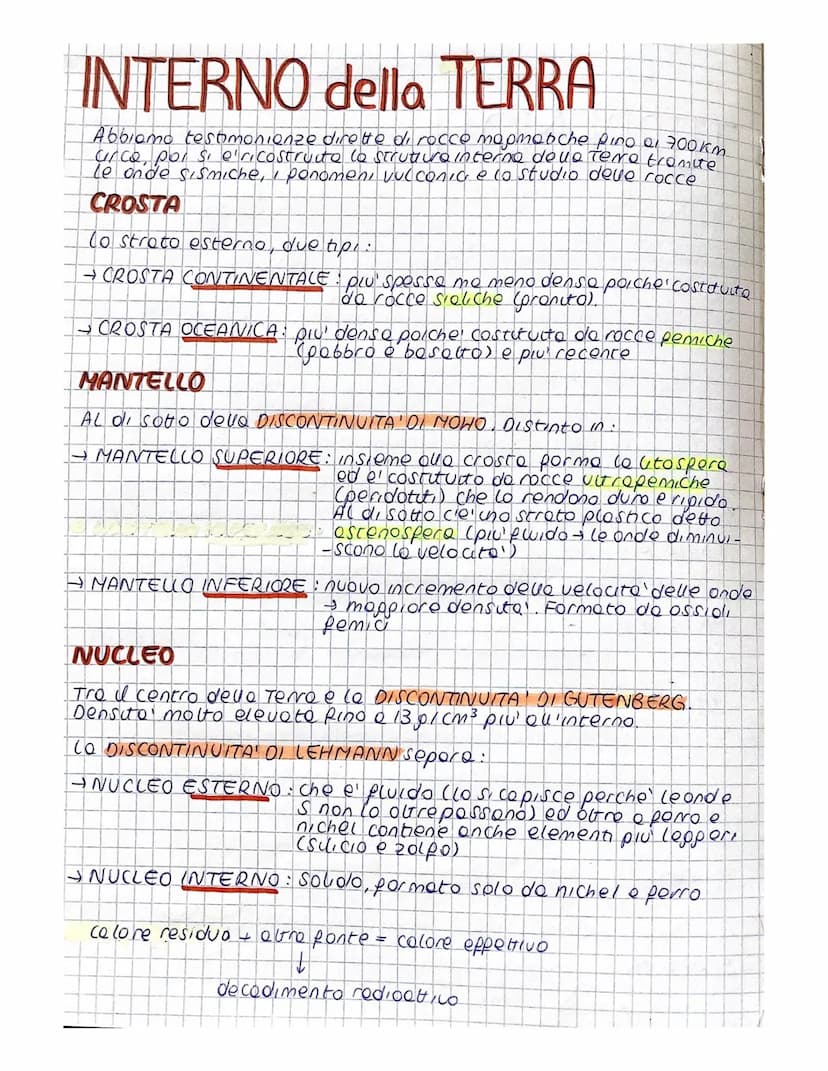 INTERNO della TERRA
Abbiamo testimonianze dirette di rocce magmatiche fino ai 700km
circa, poi si è ricostruita la struttura interna della Terra tramite
le onde sismiche, i fenomeni vulcanici e lo studio delle rocce
CROSTA
lo strato esterno, due tipi:
→ CROSTA CONTINENTALE: piu' spessa ma meno densa poiche' costituita
da rocce sialiche (granito).
→ CROSTA OCEANICA: piu' densa poiche' costituita da rocce femiche
(gabbro e basalto) e piu' recente
MANTELLO
Al di sotto della DISCONTINUITA' DI MOHO. Distinto in:
→ MANTELLO SUPERIORE: insieme alla crosta forma la litosfera
ed e' costituito da rocce ultrafemiche
(peridotiti) che lo rendono duro e rigido.
Al di sotto c'e' uno strato plastico detto
astenosfera (piu' fluido → le onde diminui-
-scono la velocita')
→ MANTELLO INFERIORE: nuovo incremento della velocita' delle onde
→ maggiore densita'. Formato da ossidi
femici
NUCLEO
Tra il centro della Terra e la DISCONTINUITA' DI GUTENBERG.
Densita' molto elevata fino a 13 g/cm³ piu' all'interno.
La DISCONTINUITA' DI LEHMANN separa:
→ NUCLEO ESTERNO: che e' fluido (lo si capisce perche' le onde
S non lo oltrepassano) ed oltre a ferro e
nichel contiene anche elementi piu' leggeri
(silicio e zolfo)
→ NUCLEO INTERNO: Solido, formato solo da nichel e ferro
calore residuo + altra fonte = calore effettivo
↓
decadimento radioattivo